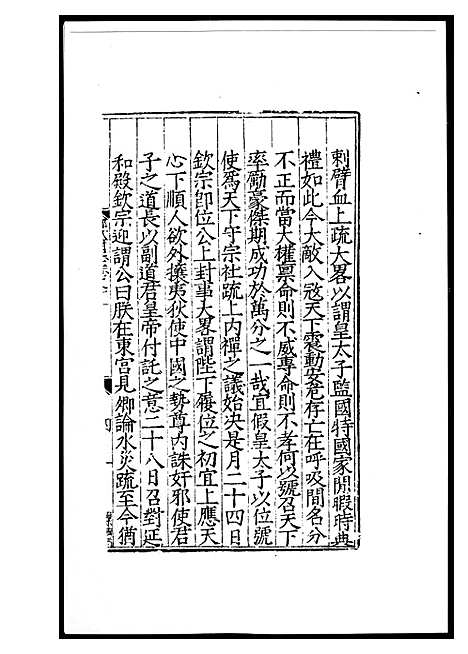 刺臂血上疏大畧以謂皇太子監國特國家閒暇時典
禮如此今大敵入寇天下震動安危存亡在呼吸間名分
不正而當大權禀命則不威專命則不孝何以號召天下
率勵豪傑期成功於萬分之一哉宜假皇太子以位號
使爲天下守宗社疏上内禪之議始决是月二十四日
欽宗卽位公上封事大畧謂陛下履位之初宜上應天
心下順人欲外攘夷狄使中國之勢尊内誅奸邪使君
子之道長以副道君皇帝付託之意二十八日召對延
和殿欽宗迎謂公曰朕在東宫見卿論水災疏至今猶
四